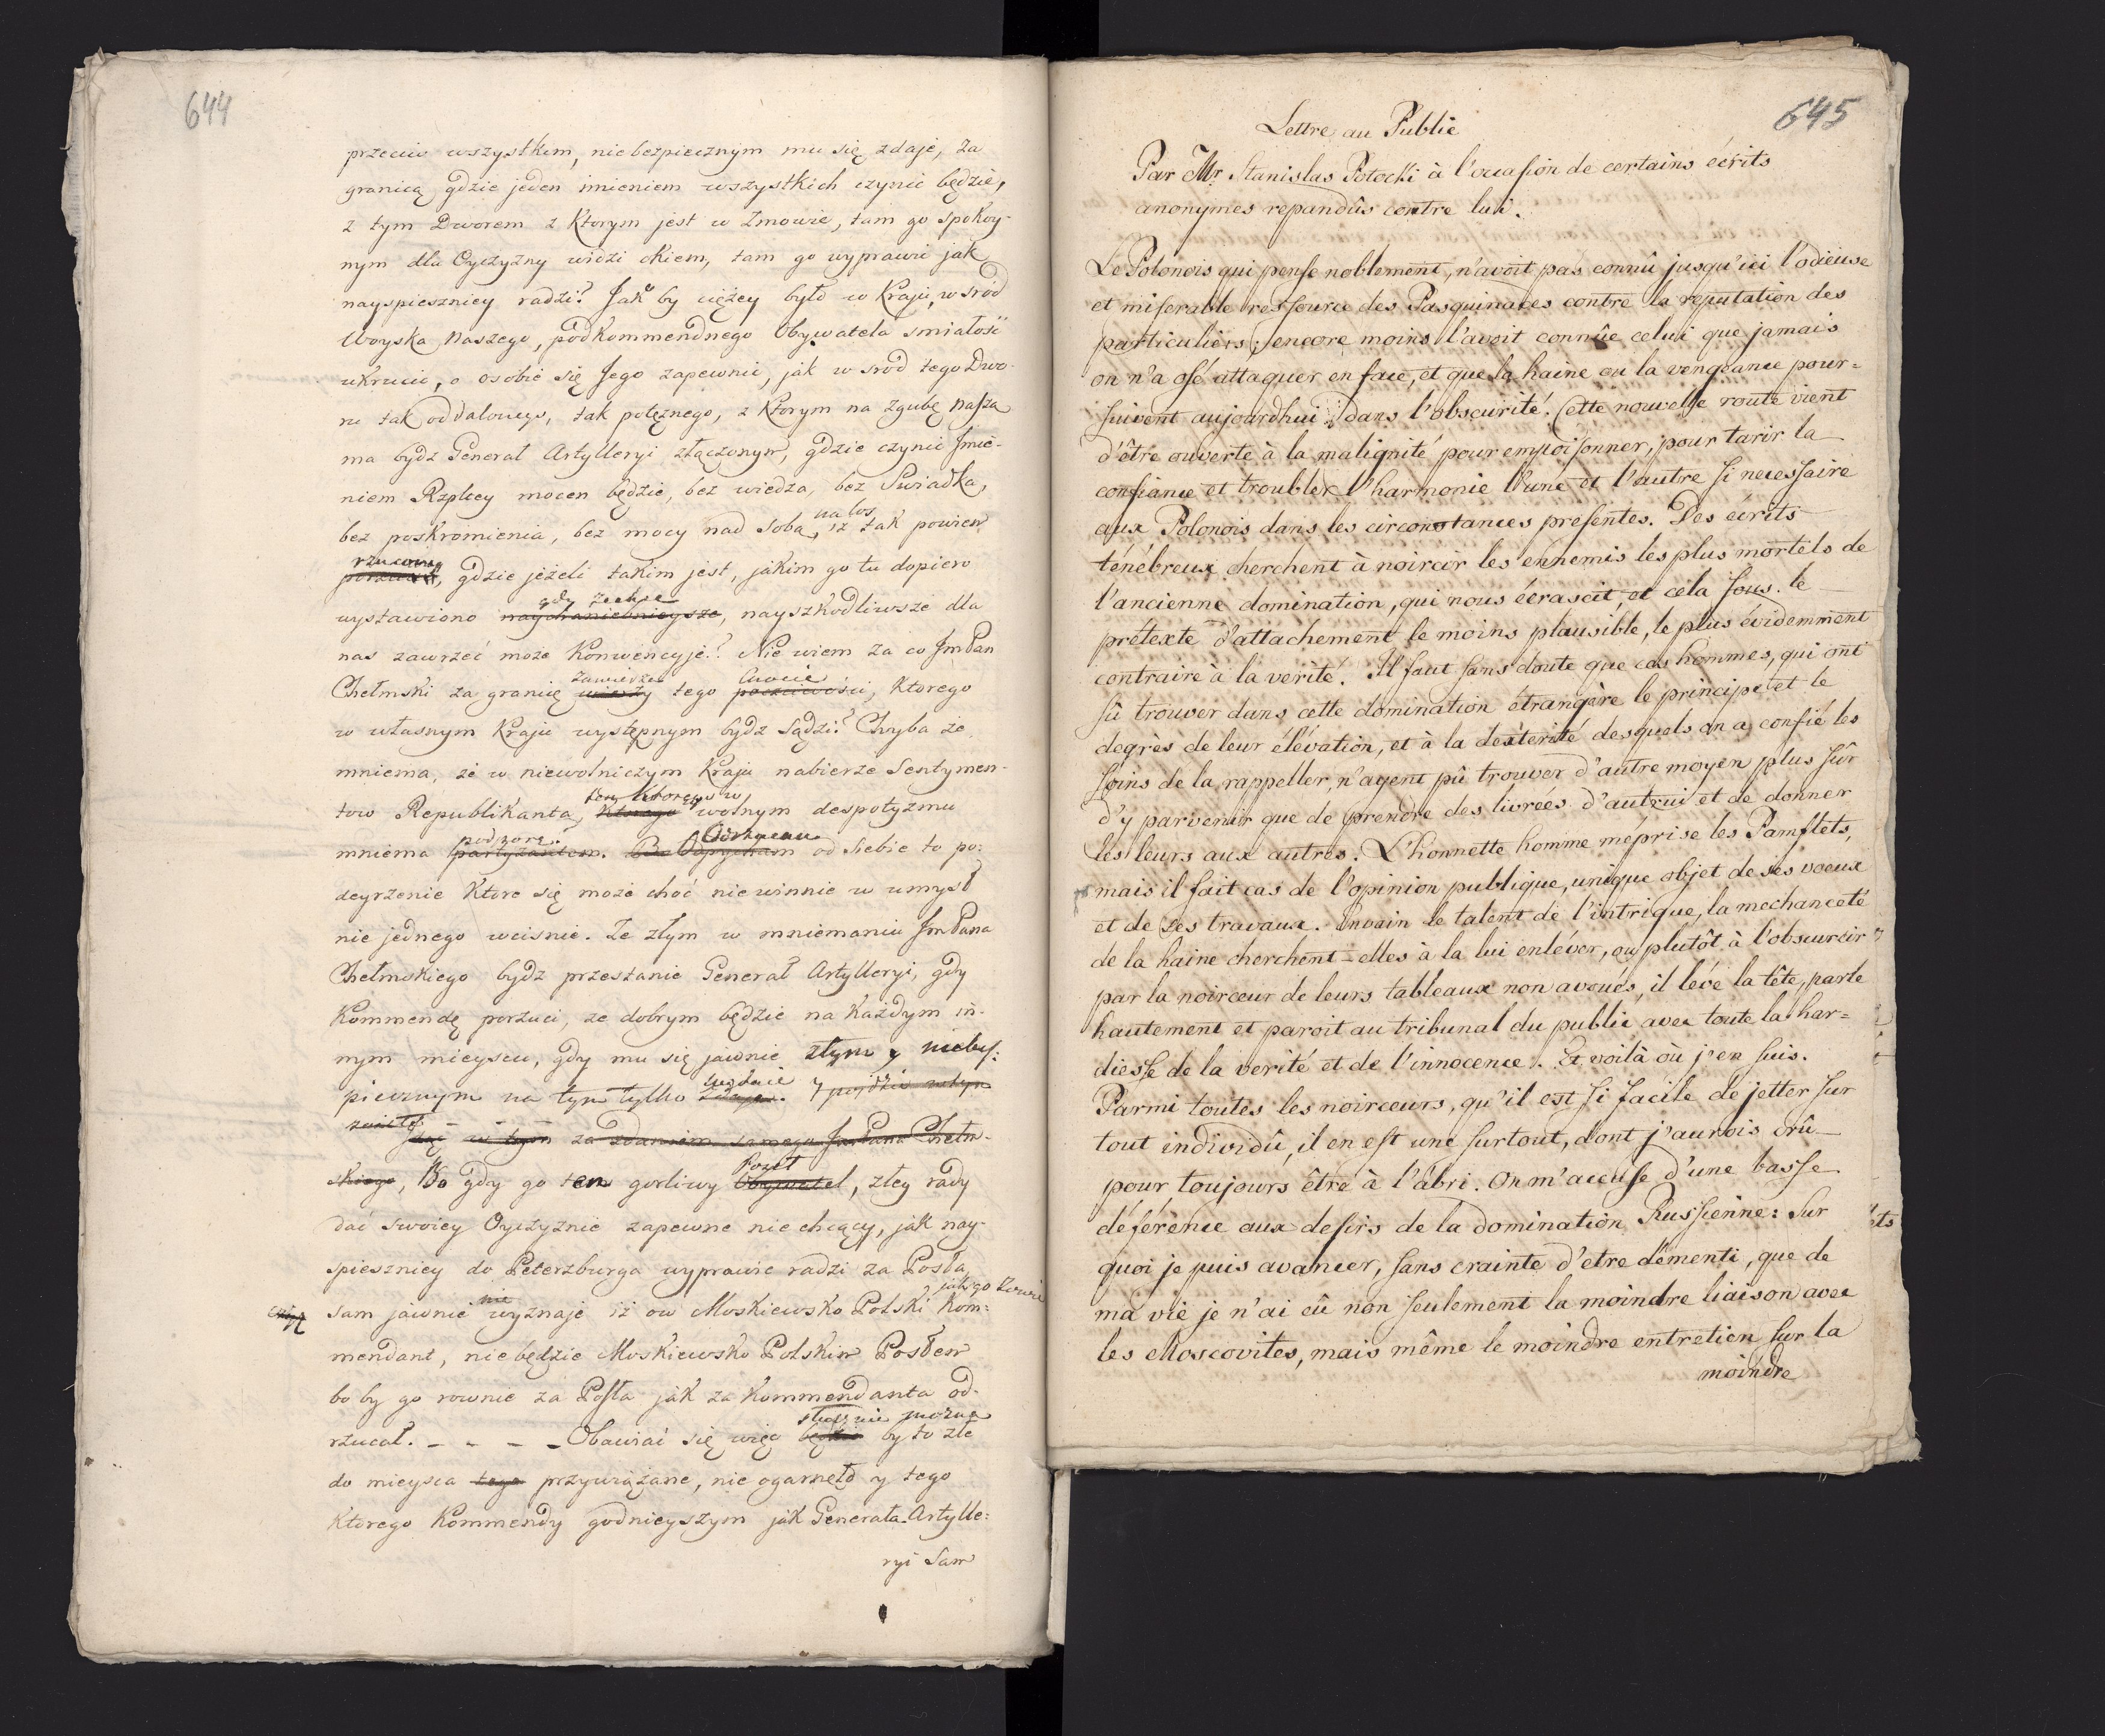 644
przeciw wszystkim, niebezpiecznym mu się zdaje, za
granicą gdzie jeden imieniem wszystkich czynić będzie,
z tym Dworem z Ktorym jest w Zmowie, tam go spokoy-
nym dla Oyczyzny widzi okiem, tam go wyprawić jak
nayspieszniey radzi? Jak by ciężey było w Kraju, wsrod
Woyska Naszego, podkommendnego Obywatela smiałość
ukrucić, o osobie się Jego zapewnić, jak w srod tego Dwo-
ru tak oddalonego, tak potężnego, z Ktorym na Zgubę Naszą
ma bydz Generał Artylleryi złączonym, gdzie czynić Jmie-
niem Rzpltey mocen będzie, bez wiedza, bez Swiadka,
na los
bez poskromienia, bez mocy nad Sobą, iż tak powiem
rzucony
gdzie jeżeli takim jest, jakim go tu dopiero
gdy zechce
wystawiono naychaniebnieysze, nayszkodliwsze dla
nas zawrzeć może Konwencyje? Nie wiem za co JmPan
Chełmski za granicę tego poczciwości, Ktorego
w własnym Kraju występnym bydz Sądzi? Chyba ze
mniema, że w niewolniczym Kraju nabierze Sentymen-
ten Ktorego w
tow Republikanta, Ktorego wolnym despotyzmu
podporą. Odpycham
mniema partyzantem. Odpycham od Siebie to po:
deyrzenie Ktore się może choć niewinnie w umysł
nie jednego weisnie. Ze złym w mniemaniu JmPana
Chełmskiego bydz przestanie Generał Artylleryi, gdy
Kommendę porzuci, ze dobrym będzie na Każdym in-
nym mieyscu, gdy mu się jawnie złym y niebes:
piecznym na tym tylko zdaje. y
w tym za zdaniem samego JmPana Chełm-
Poseł
skiego, Bo gdy go ten gorliwy Obywatel, złey rady
dać Swoiey Oyczyznie zapewne nie chcący, jak nay-
spieszniey do Peterzburga wyprawić radzi za Posła,
jak go zowie
nie
sam jawnie wyznaje iż ow Moskiewsko Polski Kom:
mendant, nie będzie Moskiewsko Polskim Posłem
bo by go rownie za Posła jak za Kommendanta od-
słusznie można
rzucał. - - - - Obawiać się więc będzie by to złe
do mieysca tego przywiązane, nie ogarneło y tego
Ktorego Kommendy godnieyszym jak Generała Artylle:
ryi Sam
645
Lettre au Public
Par Mr Stanislas Potocki à l'occasion de certains écrits
anonymes repandûs contre lui.
Le Polonois qui pense noblement, n'avoit pas connû jusqu'ici l'odieuse
et miserable ressource des Pasquinades contre la reputation des
particuliers; encore moins l'avoit connûe celui que jamais
on n'a osé attaquer en face, et que la haine ou la vengeance pour-
suivent aujourdhui dans l'obscurité. Cette nouvelle route vient
d'être ouverte à la malignité pour empoisonner, pour tarir la
confiance et troubler l'harmonie l'une et l'autre si necessaire
aux Polonois dans les circonstances presentes. Des écrits
ténébreux cherchent à noircir les ennemis les plus mortels de
l'ancienne domination, qui nous écrasoit, et cela sous le
prétexte d'attachement le moins plausible, le plus évidemment
contraire à la verité. Il faut sans doute que ces hommes, qui ont
sû trouver dans cette domination étrangère le principe et le
degrès de leur élévation, et à la dexterité desquels on a confié les
soins de la rappeller, n'ayent pû trouver d'autre moyen plus sûr
d'y parvenir que de prendre des livrées d'autrui et de donner
les leurs aux autres. L'honnette homme méprise les Pamflets,
mais il fait cas de l'opinion publique, unique objet de ses voeux
et de ses travaux. Envain le talent de l'intrigue, la mechanceté
de la haine cherchent-elles à la lui enléver, ou plutôt à l'obscurcir
par la noirceur de leurs tableaux non avoués, il léve la tête, parle
hautement et paroit au tribunal du public avec toute la har=
diesse de la verité et de l'innocence. Et voilà où j'en suis.
Parmi toutes les noirceurs, qu'il est si facile de jetter sur
tout individû, il en est une surtout, dont j'aurois crû
pour toujours être à l'abri. On m'accuse d'une basse
déférence aux desirs de la domination Russienne: Sur
quoi je puis avancer, sans crainte d'etre démenti, que de
ma vie je n'ai eû non seulement la moindre liaison avec
les Moscovites, mais même le moindre entretien sur la
moindre